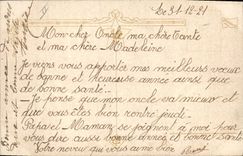 Le 31-12-21
Mon cher Oncle, ma chère Tante
et ma chère Madeleine
Je viens vous apporter mes meilleurs voeux
de bonne et heureuse année ainsi que
de bonne santé.
Je pense que mon oncle va mieux et
que vous êtes bien rentré jeudi.
Papa et Maman se joignent à moi pour
vous dire aussi bonne année et bonne santé
Votre neveu qui vous aime bien